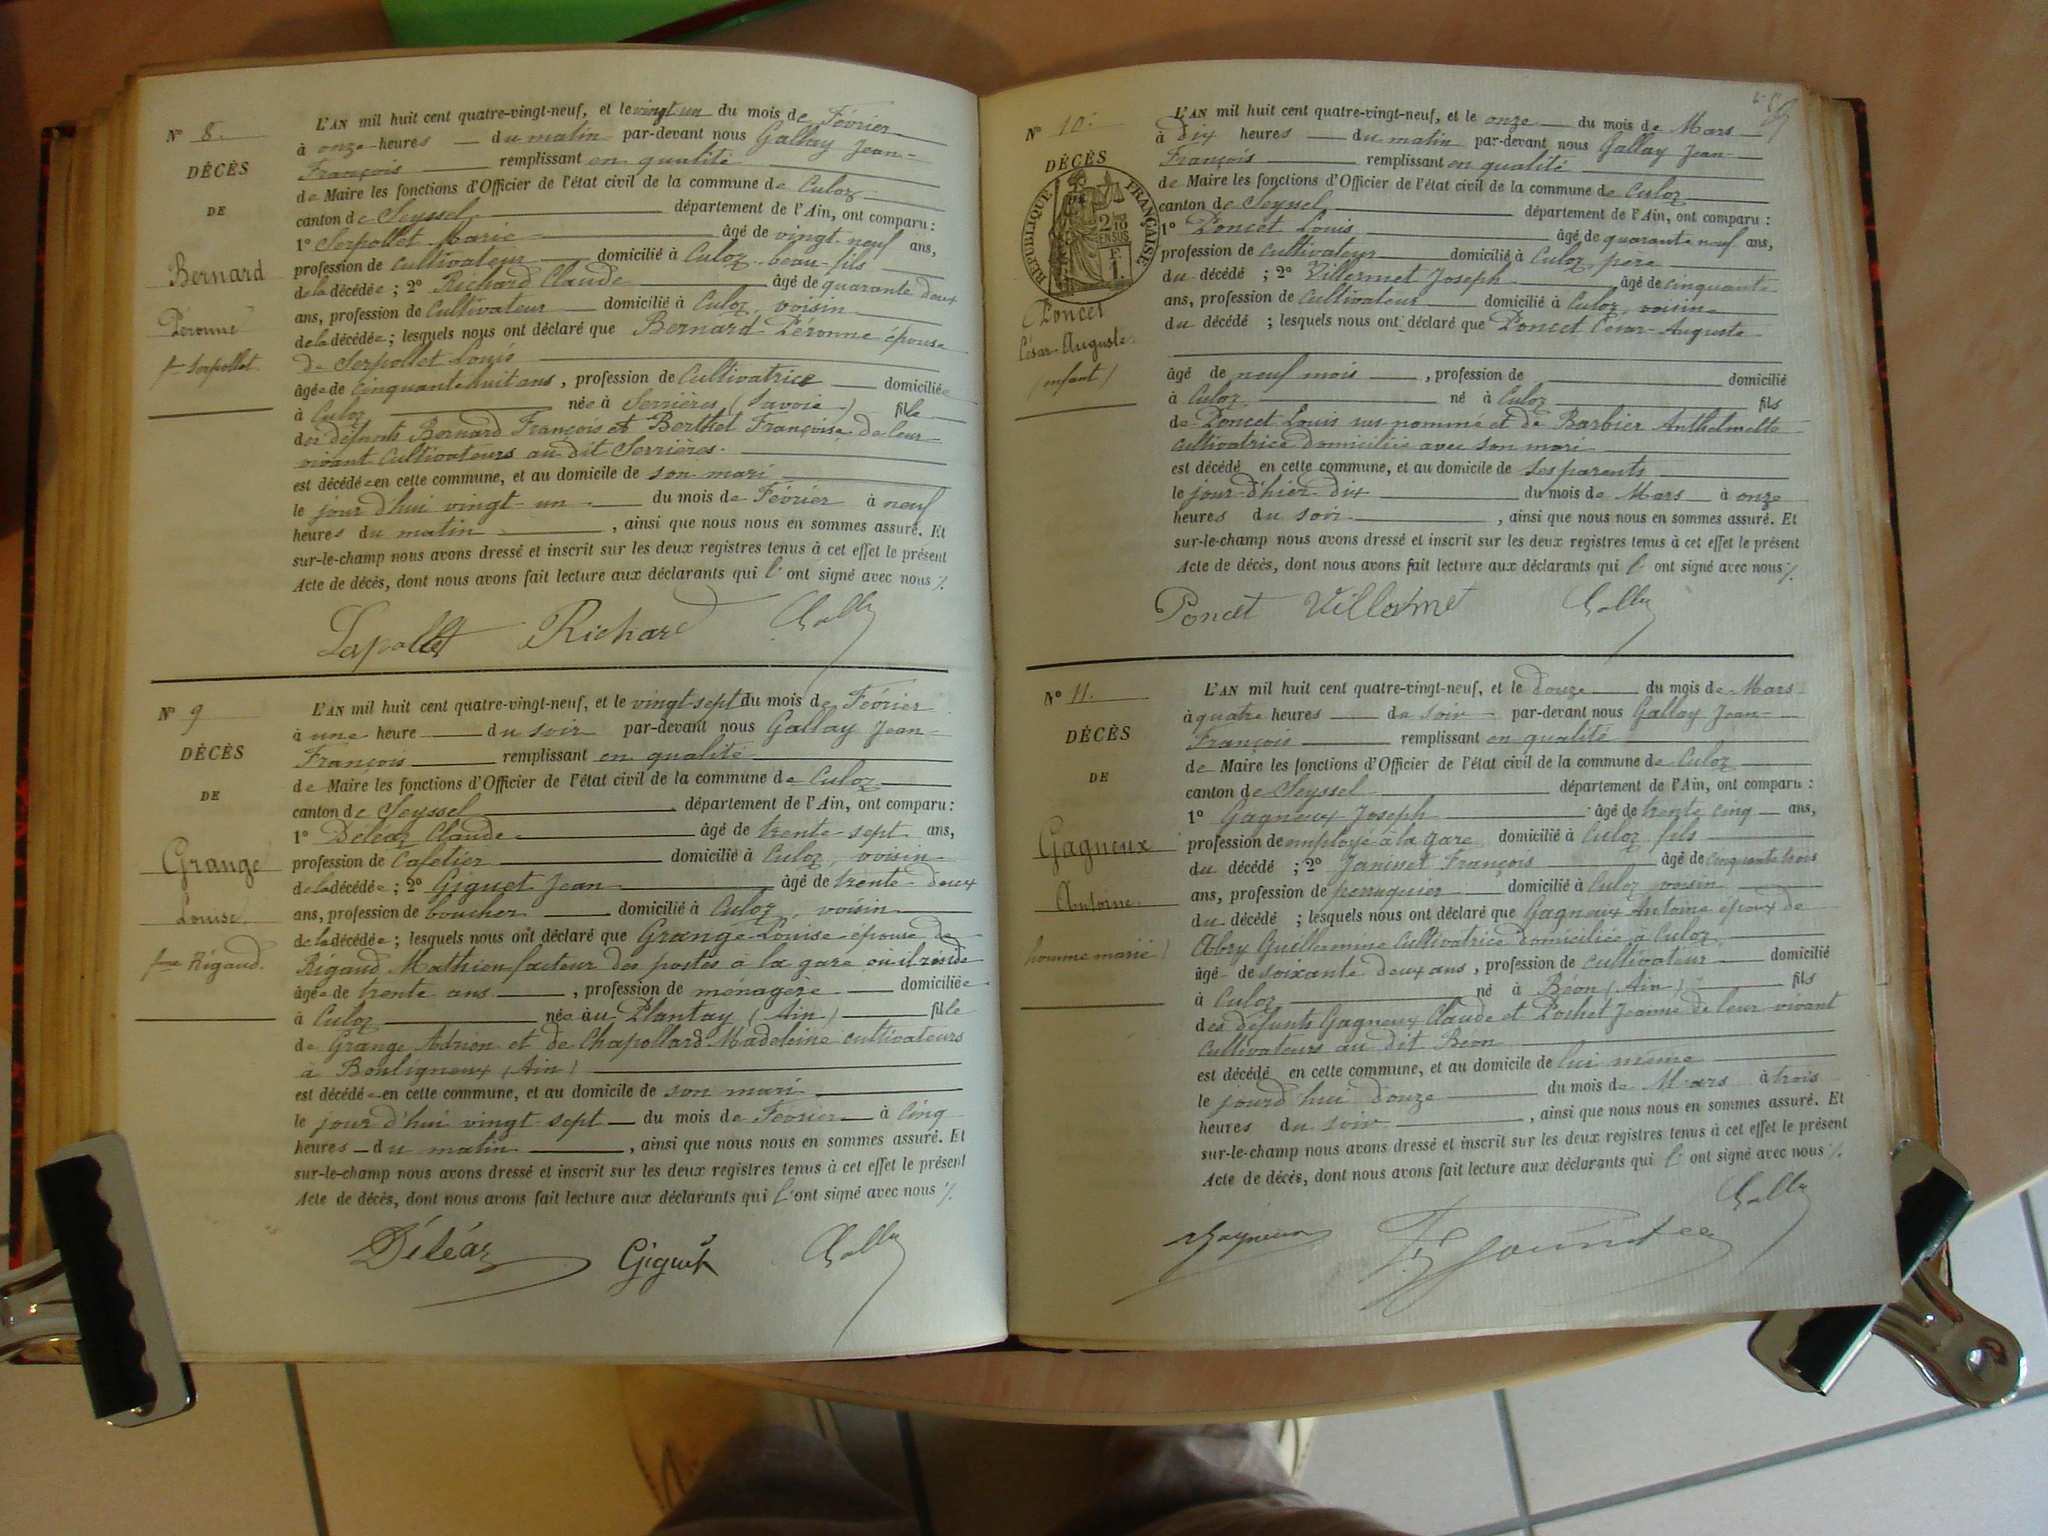 N° 8.
DÉCÈS
DE
Bernard
Péronne
fme Serpollet
L'AN mil huit cent quatre-vingt-neuf, et le vingt-un du mois de Février
à onze heures du matin par-devant nous Gallay Jean-
François remplissant en qualité
de Maire les fonctions d'Officier de l'état civil de la commune de Culoz
canton de Seyssel département de l'Ain, ont comparu :
1° Serpollet Marie âgé de vingt-neuf ans,
profession de cultivateur domicilié à Culoz beau-fils
de la décédée ; 2° Richard Claude âgé de quarante deux
ans, profession de Cultivateur domicilié à Culoz, voisin
de la décédée ; lesquels nous ont déclaré que Bernard Péronne épouse
de Serpollet Louis
âgée de Cinquante huit ans, profession de Cultivatrice domiciliée
à Culoz née à Serrières (Savoie) fille
des défunts Bernard François et Berthet Françoise, de leur
vivant Cultivateurs au dit Serrières.
est décédée en cette commune, et au domicile de son mari
le jour d'hui vingt-un du mois de Février à neuf
heures du matin, ainsi que nous nous en sommes assuré. Et
sur-le-champ nous avons dressé et inscrit sur les deux registres tenus à cet effet le présent
Acte de décès, dont nous avons fait lecture aux déclarants qui l'ont signé avec nous ./.
Richard Gallay
N° 9
DÉCÈS
DE
Grange
Louise
fme Rigaud.
L'AN mil huit cent quatre-vingt-neuf, et le vingt-sept du mois de Février
à une heure du soir par-devant nous Gallay Jean-
François remplissant en qualité
de Maire les fonctions d'Officier de l'état civil de la commune de Culoz
canton de Seyssel département de l'Ain, ont comparu :
1° Déléaz Claude âgé de trente-sept ans,
profession de Cafetier domicilié à Culoz, voisin
de la décédée ; 2° Giguet Jean âgé de trente-deux
ans, profession de boucher domicilié à Culoz, voisin
de la décédée ; lesquels nous ont déclaré que Grange Louise épouse de
Rigaud Mathieu facteur des postes à la gare où il réside
âgée de trente ans, profession de ménagère domiciliée
à Culoz née au Plantay (Ain) fille
de Grange Adrien et de Chapollard Madeleine cultivateurs
à Bouligneux (Ain)
est décédée en cette commune, et au domicile de son mari
le jour d'hui vingt-sept du mois de Février à Cinq
heures du matin, ainsi que nous nous en sommes assuré. Et
sur-le-champ nous avons dressé et inscrit sur les deux registres tenus à cet effet le présent
Acte de décès, dont nous avons fait lecture aux déclarants qui l'ont signé avec nous ./.
Déléaz Giguet Gallay
N° 10.
DÉCÈS
RÉPUBLIQUE FRANÇAISE
Poncet
César-Auguste
(enfant)
L'AN mil huit cent quatre-vingt-neuf, et le onze du mois de Mars
à dix heures du matin par-devant nous Gallay Jean-
François remplissant en qualité
de Maire les fonctions d'Officier de l'état civil de la commune de Culoz
canton de Seyssel département de l'Ain, ont comparu :
1° Poncet Louis âgé de quarante neuf ans,
profession de cultivateur domicilié à Culoz père
du décédé ; 2° Villermet Joseph âgé de cinquante
ans, profession de Cultivateur domicilié à Culoz, voisin
du décédé ; lesquels nous ont déclaré que Poncet César-Auguste
âgé de neuf mois, profession de domicilié
à Culoz né à Culoz fils
de Poncet Louis sus nommé et de Barbier Anthelmette
cultivatrice domiciliée avec son mari
est décédé en cette commune, et au domicile de ses parents
le jour d'hier dix du mois de Mars à onze
heures du soir, ainsi que nous nous en sommes assuré. Et
sur-le-champ nous avons dressé et inscrit sur les deux registres tenus à cet effet le présent
Acte de décès, dont nous avons fait lecture aux déclarants qui l'ont signé avec nous ./.
Poncet Villermet Gallay
N° 11.
DÉCÈS
DE
Gagneux
Antoine
homme marié)
L'AN mil huit cent quatre-vingt-neuf, et le douze du mois de Mars
à quatre heures du soir par-devant nous Gallay Jean-
François remplissant en qualité
de Maire les fonctions d'Officier de l'état civil de la commune de Culoz
canton de Seyssel département de l'Ain, ont comparu :
1° Gagneux Joseph âgé de trente cinq ans,
profession de employé à la gare domicilié à Culoz fils
du décédé ; 2° Janinet François âgé de cinquante trois
ans, profession de perruquier domicilié à Culoz voisin
du décédé ; lesquels nous ont déclaré que Gagneux Antoine époux de
Abry Guillermine Cultivatrice domiciliée à Culoz
âgé de soixante deux ans, profession de cultivateur domicilié
à Culoz né à Béon (Ain) fils
des défunts Gagneux Claude et Pochet Jeanne de leur vivant
Cultivateurs au dit Béon
est décédé en cette commune, et au domicile de lui même
le jourd'hui douze du mois de Mars à trois
heures du soir, ainsi que nous nous en sommes assuré. Et
sur-le-champ nous avons dressé et inscrit sur les deux registres tenus à cet effet le présent
Acte de décès, dont nous avons fait lecture aux déclarants qui l'ont signé avec nous ./.
Gagneux Gallay